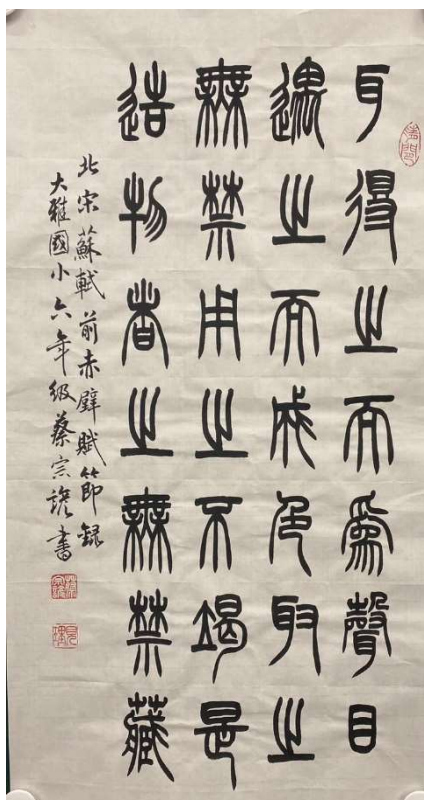 耳得之而為聲目
遇之而成色取之
無禁用之不竭是
造物者之無禁藏
北宋蘇軾前赤壁賦節錄
大雅國小六年級蔡宗諺書